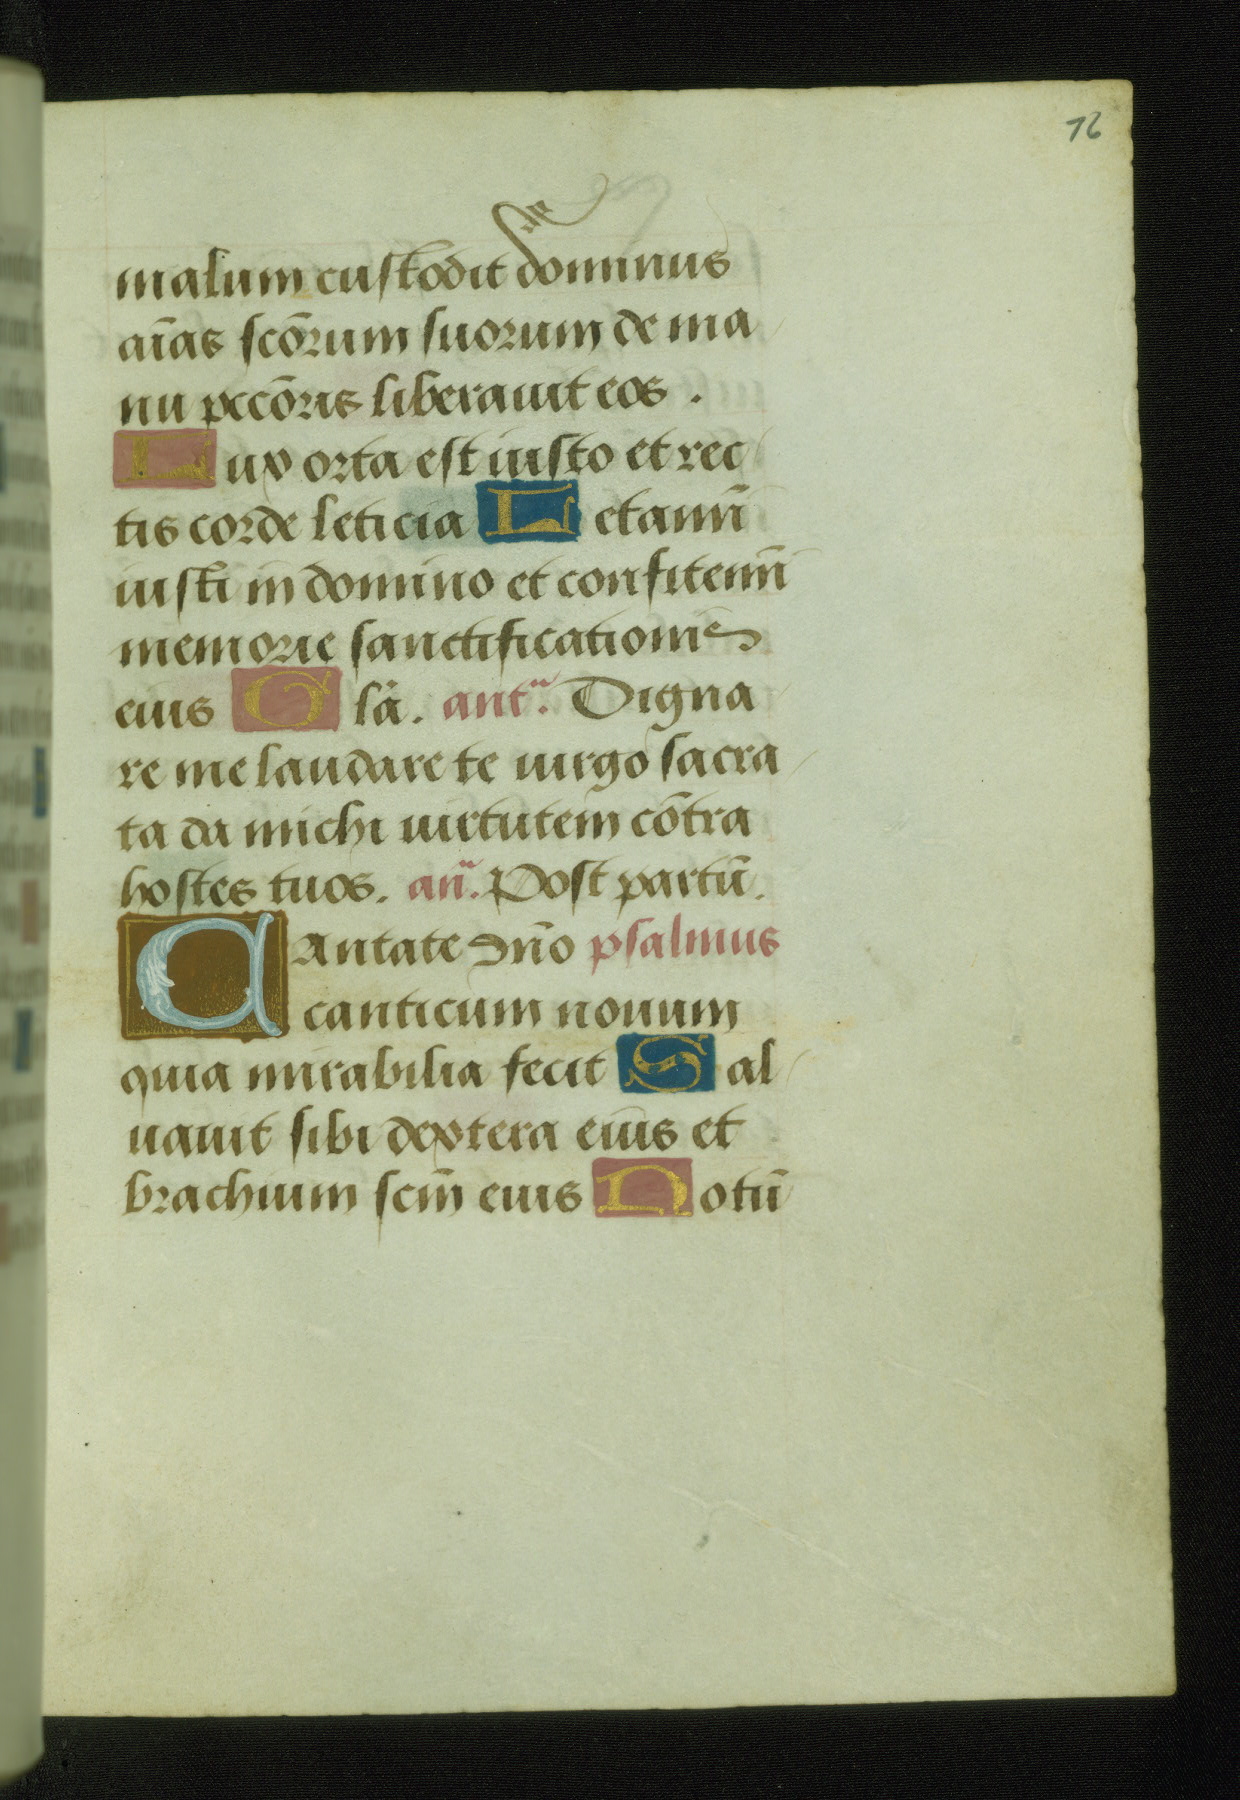 76
malum custodit dominus
aīas scōrum suorum de ma
nu pccōris liberauit eos .
Lux orta est iusto et rec
tis corde leticia Letamī
iusti in domino et confitemī
memorie sanctificationis
eius Glā. antᵃ. Digna
re me laudare te uirgo sacra
ta da michi uirtutem cōtra
hostes tuos. añ. Post partū.
Cantate dño psalmus
canticum nouum
quia mirabilia fecit Sal
uauit sibi dextera eius et
brachium scm̄ eius Notū